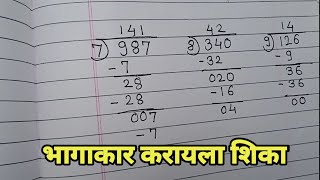 141 42 14
7) 987 8) 340 9) 126
-7 -32 -9
28 020 36
-28 -16 -36
007 04 00
-7
भागाकार करायला शिका